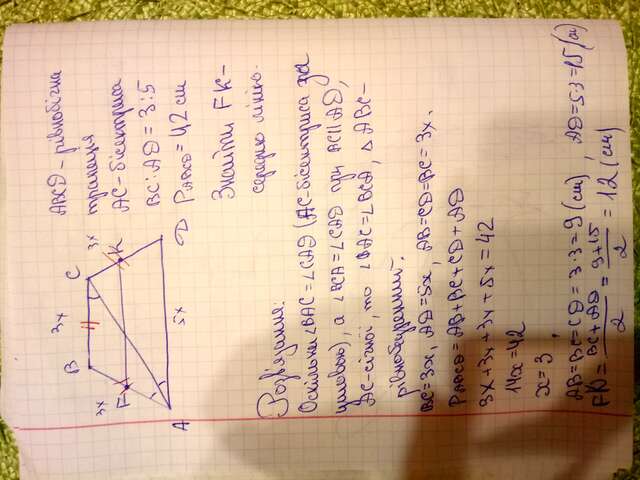 ABCD - рівнобічна
трапеція
AC - бісектриса
BC : AD = 3:5
P ABCD = 42 см
Знайти FK -
середню лінію.
B
3x
C
3x
K
D
5x
A
F
3x
Розв'язання:
Оскільки ∠BAC = ∠CAD (AC - бісектриса за
умовою), а ∠BCA = ∠CAD при
AC - січній, то ∠BAC = ∠BCA, △ABC -
рівнобедрений.
BC = 3x, AD = 5x, AB = CD = BC = 3x.
P ABCD = AB + BC + CD + AD
3x + 3x + 3x + 5x = 42
14x = 42
x = 3
AB = BC = CD = 3·3 = 9 (см), AD = 5·3 = 15 (см)
FK = BC + AD / 2 = 9 + 15 / 2 = 12 (см)